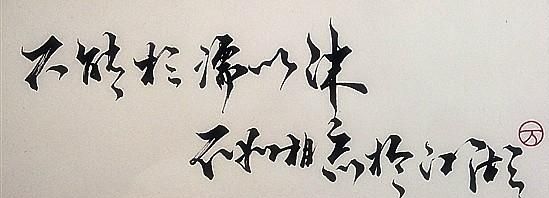 不能於濡以沫
不如相忘於江湖